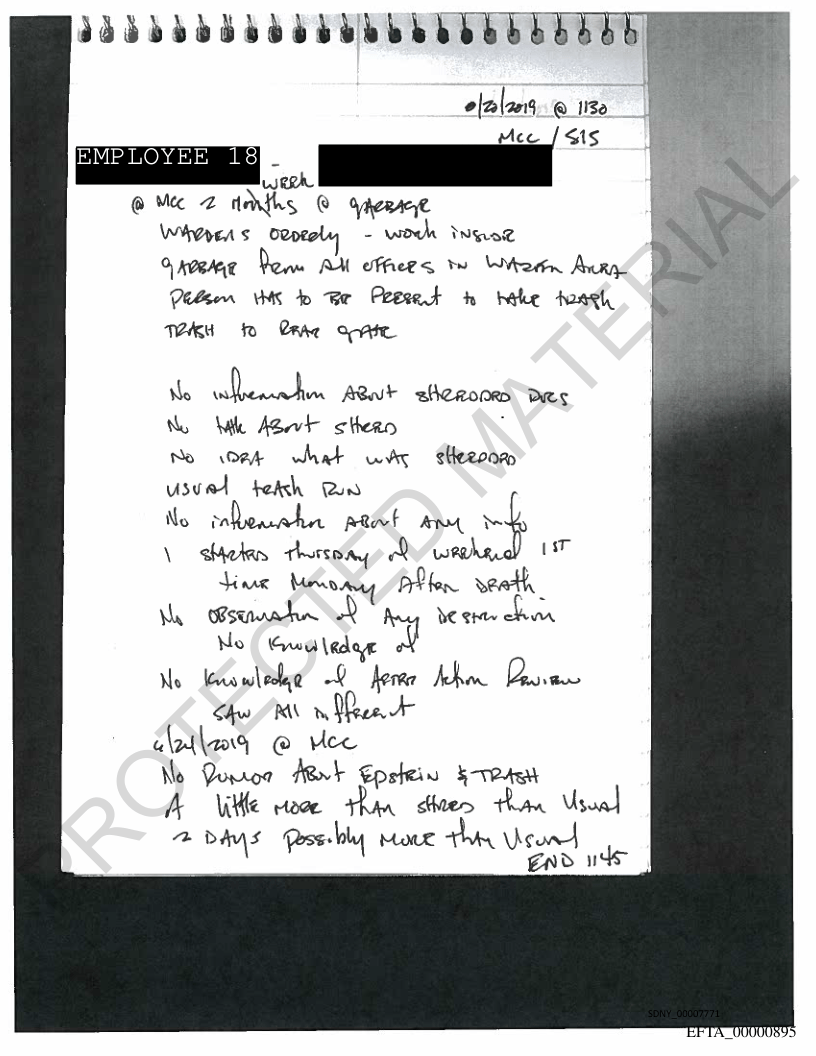 /20/2019 @ 1130
MCC / SIS
EMPLOYEE 18 -
WEEK
@ MCC 2 MONTHS @ GARBAGE
WARDENS ORDERLY - WORK INSIDE
GARBAGE FROM ALL OFFICES IN WARDEN AREA
PERSON HAS to BE PRESENT to TAKE TRASH
TRASH to REAR GATE
No information ABout SHREDDED DOCS
No talk ABout SHRED
No IDEA what WAS SHREDDED
USUAl trAsh RUN
No information ABout Any info
1 STARTED THURSDAY of WEEKEND 1ST
time MONDAY After DEATH
No OBSERVATION of Any DESTRUCTION
No Knowledge of
No Knowledge of AFTER Action REVIEW
SAW All
/24/2019 @ MCC
No RUMOR ABout Epstein & TRASH
A little MORE than SHRED than Usual
2 DAYS Possibly MORE than Usual
END 1145
PROTECTED MATERIAL
SDNY_00007771
EFTA_00000895